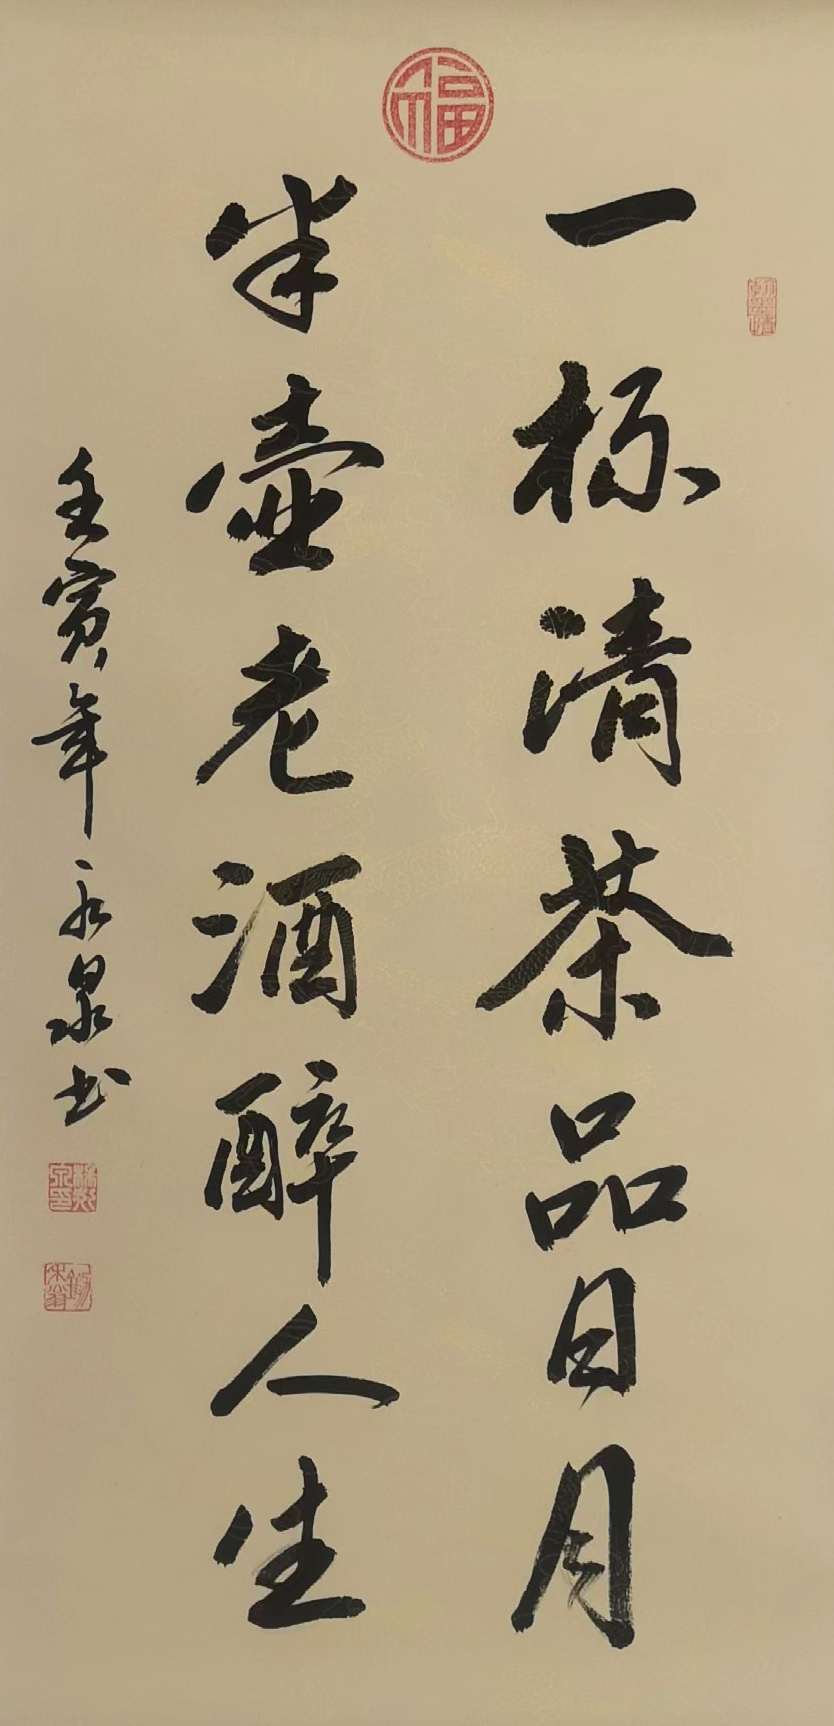 福
一杯清茶品日月
半壶老酒醉人生
壬寅年永泉书